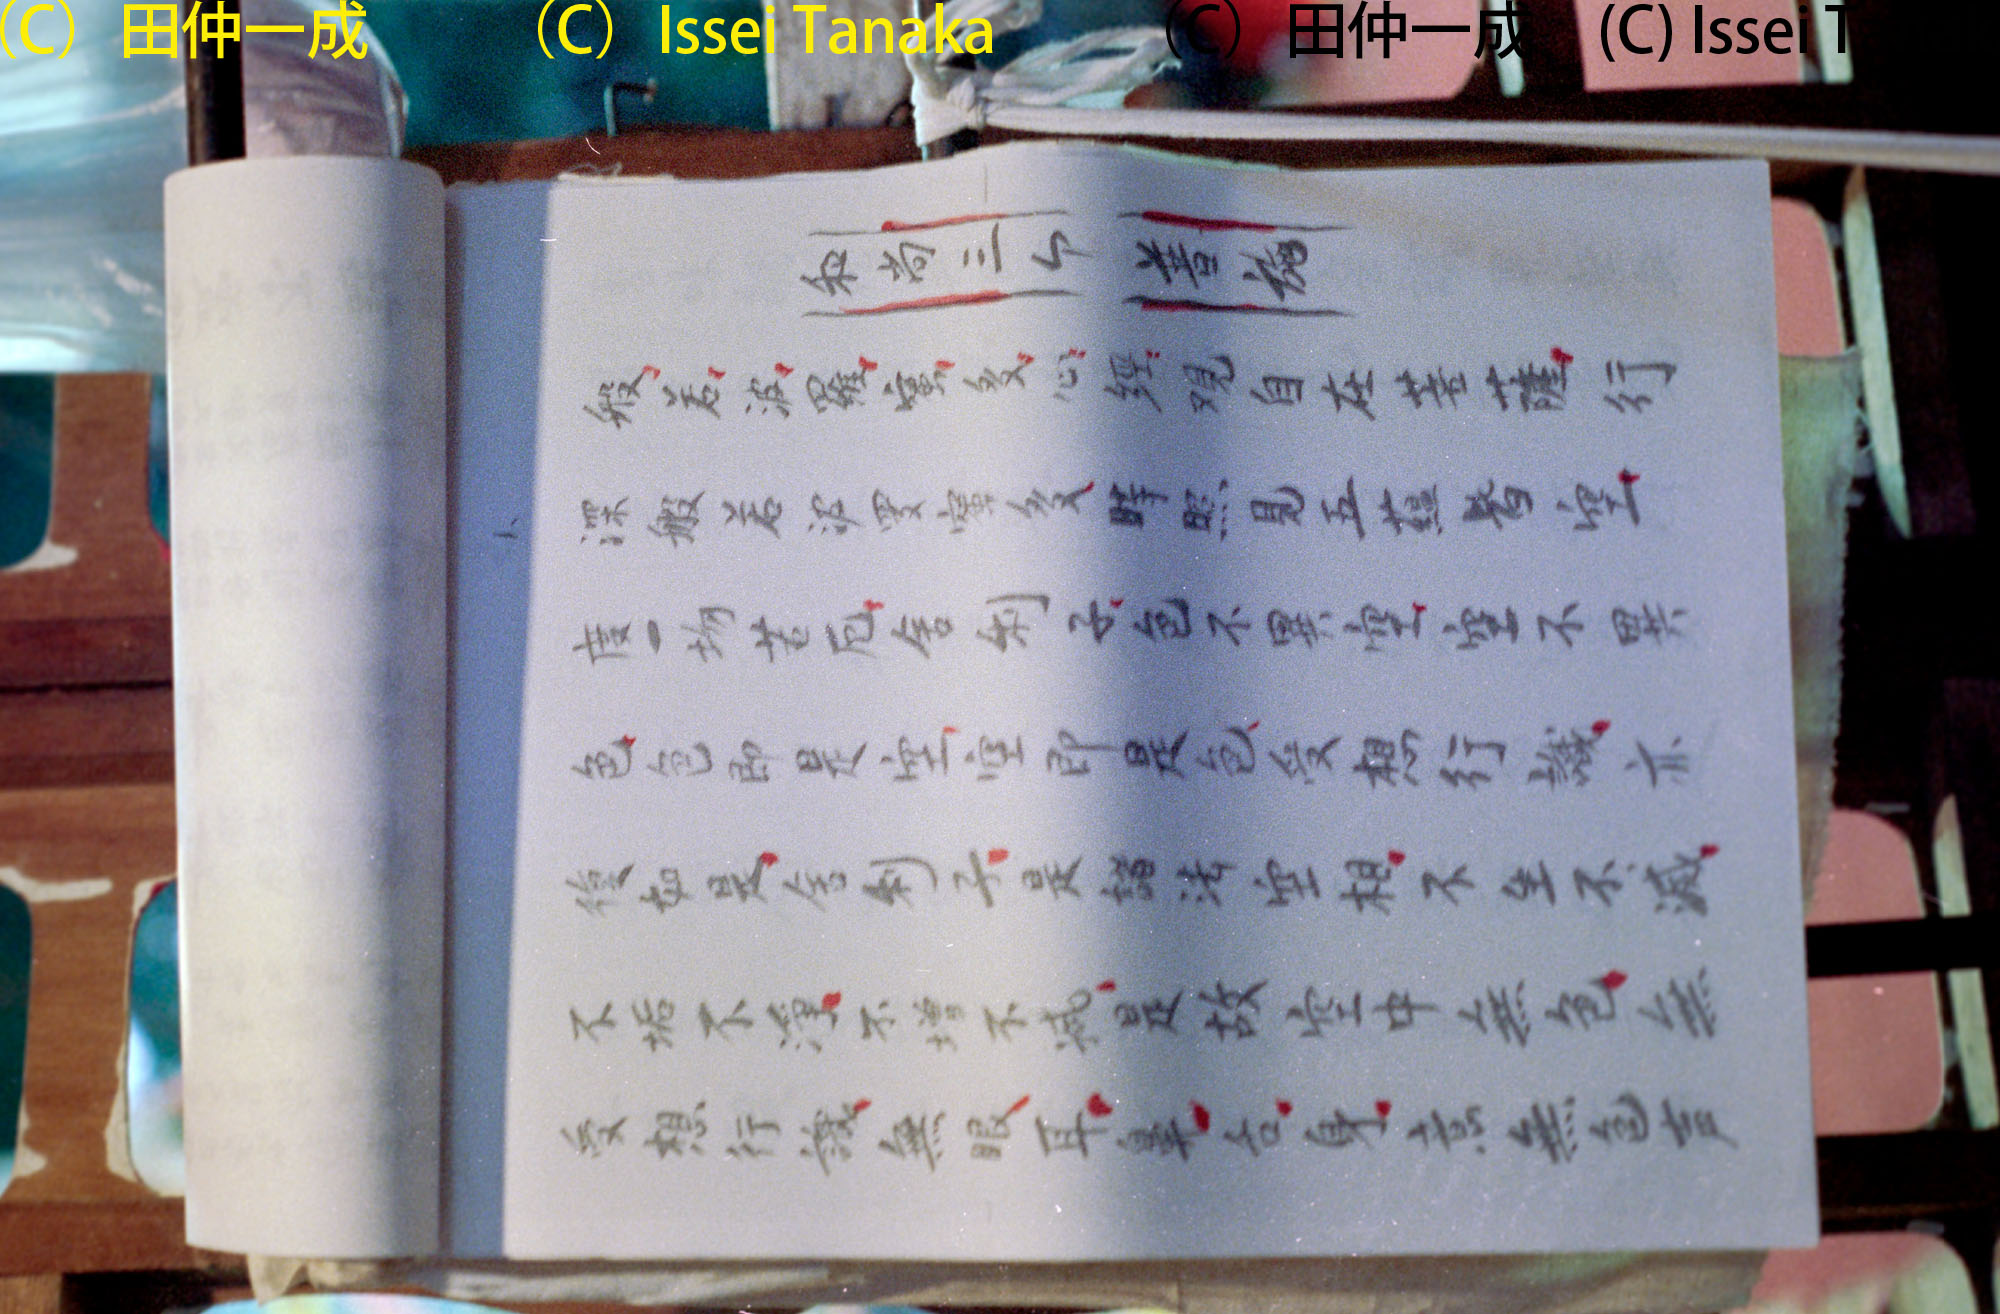 （C） 田仲一成 （C） Issei Tanaka （C） 田仲一成 (C) Issei T
和尚三
般若波羅蜜多心經觀自在菩薩行
深般若波罗蜜多時照見五蘊皆空
度一切苦厄舍利子色不異空空不異
色色即是空空即是色受想行識亦
復如是舍利子是諸法空相不生不滅
不垢不淨不增不減是故空中無色無
受想行識無眼耳鼻舌身意無色声